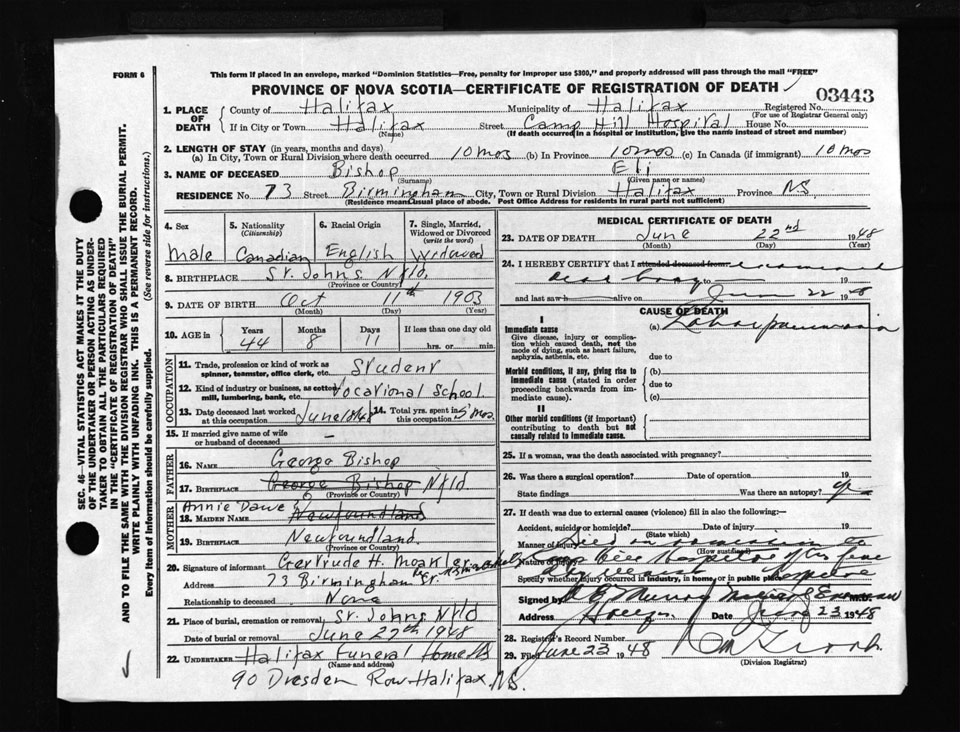 FORM 6
This form if placed in an envelope, marked "Dominion Statistics—Free, penalty for improper use $300," and properly addressed will pass through the mail "FREE"
PROVINCE OF NOVA SCOTIA—CERTIFICATE OF REGISTRATION OF DEATH
03443
1. PLACE OF DEATH
County of Halifax Municipality of Halifax Registered No.
(For use of Registrar General only)
If in City or Town Halifax Street Camp Hill Hospital House No.
(Name) (If death occurred in a hospital or institution, give the name instead of street and number)
2. LENGTH OF STAY (in years, months and days)
(a) In City, Town or Rural Division where death occurred 10 mos (b) In Province 10 mos (c) In Canada (if immigrant) 10 mos
3. NAME OF DECEASED Bishop Eli
(Surname) (Given name or names)
RESIDENCE No. 73 Street Birmingham City, Town or Rural Division Halifax Province NS
(Residence means usual place of abode. Post Office Address for residents in rural parts not sufficient)
4. Sex
Male
5. Nationality
(Citizenship)
Canadian
6. Racial Origin
English
7. Single, Married, Widowed or Divorced
(write the word)
Widowed
8. BIRTHPLACE St. Johns Nfld.
(Province or Country)
9. DATE OF BIRTH Oct 11th 1903
(Month) (Day) (Year)
10. AGE in Years Months Days If less than one day old
44 8 11 hrs. or min.
OCCUPATION
11. Trade, profession or kind of work as spinner, teamster, office clerk, etc. Student
12. Kind of industry or business, as cotton mill, lumbering, bank, etc. Vocational School.
13. Date deceased last worked at this occupation June
14. Total yrs. spent in this occupation 5 mos.
15. If married give name of wife or husband of deceased –
FATHER
16. NAME George Bishop
17. BIRTHPLACE George Bishop Nfld
(Province or Country)
MOTHER
Annie Dawe
18. MAIDEN NAME Newfoundland
19. BIRTHPLACE Newfoundland.
(Province or Country)
20. Signature of informant Gertrude H. Moakler
Address 73 Birmingham St.
Relationship to deceased None
21. Place of burial, cremation or removal St. Johns Nfld
Date of burial or removal June 27th 1948
22. UNDERTAKER Halifax Funeral Home
(Name and address)
90 Dresden Row Halifax. NS.
MEDICAL CERTIFICATE OF DEATH
23. DATE OF DEATH June 22nd 1948
(Month) (Day) (Year)
24. I HEREBY CERTIFY that I attended deceased from examined
dead body 19
and last saw h alive on June 22 1948
CAUSE OF DEATH
I
Immediate cause
Give disease, injury or complication which caused death, not the mode of dying, such as heart failure, asphyxia, asthenia, etc.
(a) Lobar pneumonia
due to
Morbid conditions, if any, giving rise to immediate cause (stated in order proceeding backwards from immediate cause).
(b)
due to
(c)
II
Other morbid conditions (if important) contributing to death but not causally related to immediate cause.
25. If a woman, was the death associated with pregnancy?
26. Was there a surgical operation? Date of operation 19
State findings Was there an autopsy?
27. If death was due to external causes (violence) fill in also the following:—
Accident, suicide or homicide? Date of injury 19
(State which)
Manner of injury Died on
(How sustained)
Nature of injury Camp Hill Hospital
Specify whether injury occurred in industry, in home, or in public place
Signed by Murray Medical Examiner M.D.
Address Date June 23 1948
28. Registrar's Record Number
29. File June 23 1948
(Division Registrar)
SEC. 46—VITAL STATISTICS ACT MAKES IT THE DUTY OF THE UNDERTAKER OR PERSON ACTING AS UNDERTAKER TO OBTAIN ALL THE PARTICULARS REQUIRED IN THE "CERTIFICATE OF REGISTRATION OF DEATH" AND TO FILE THE SAME WITH THE DIVISION REGISTRAR WHO SHALL ISSUE THE BURIAL PERMIT.
WRITE PLAINLY WITH UNFADING INK. THIS IS A PERMANENT RECORD.
Every item of information should be carefully supplied. (See reverse side for instructions.)